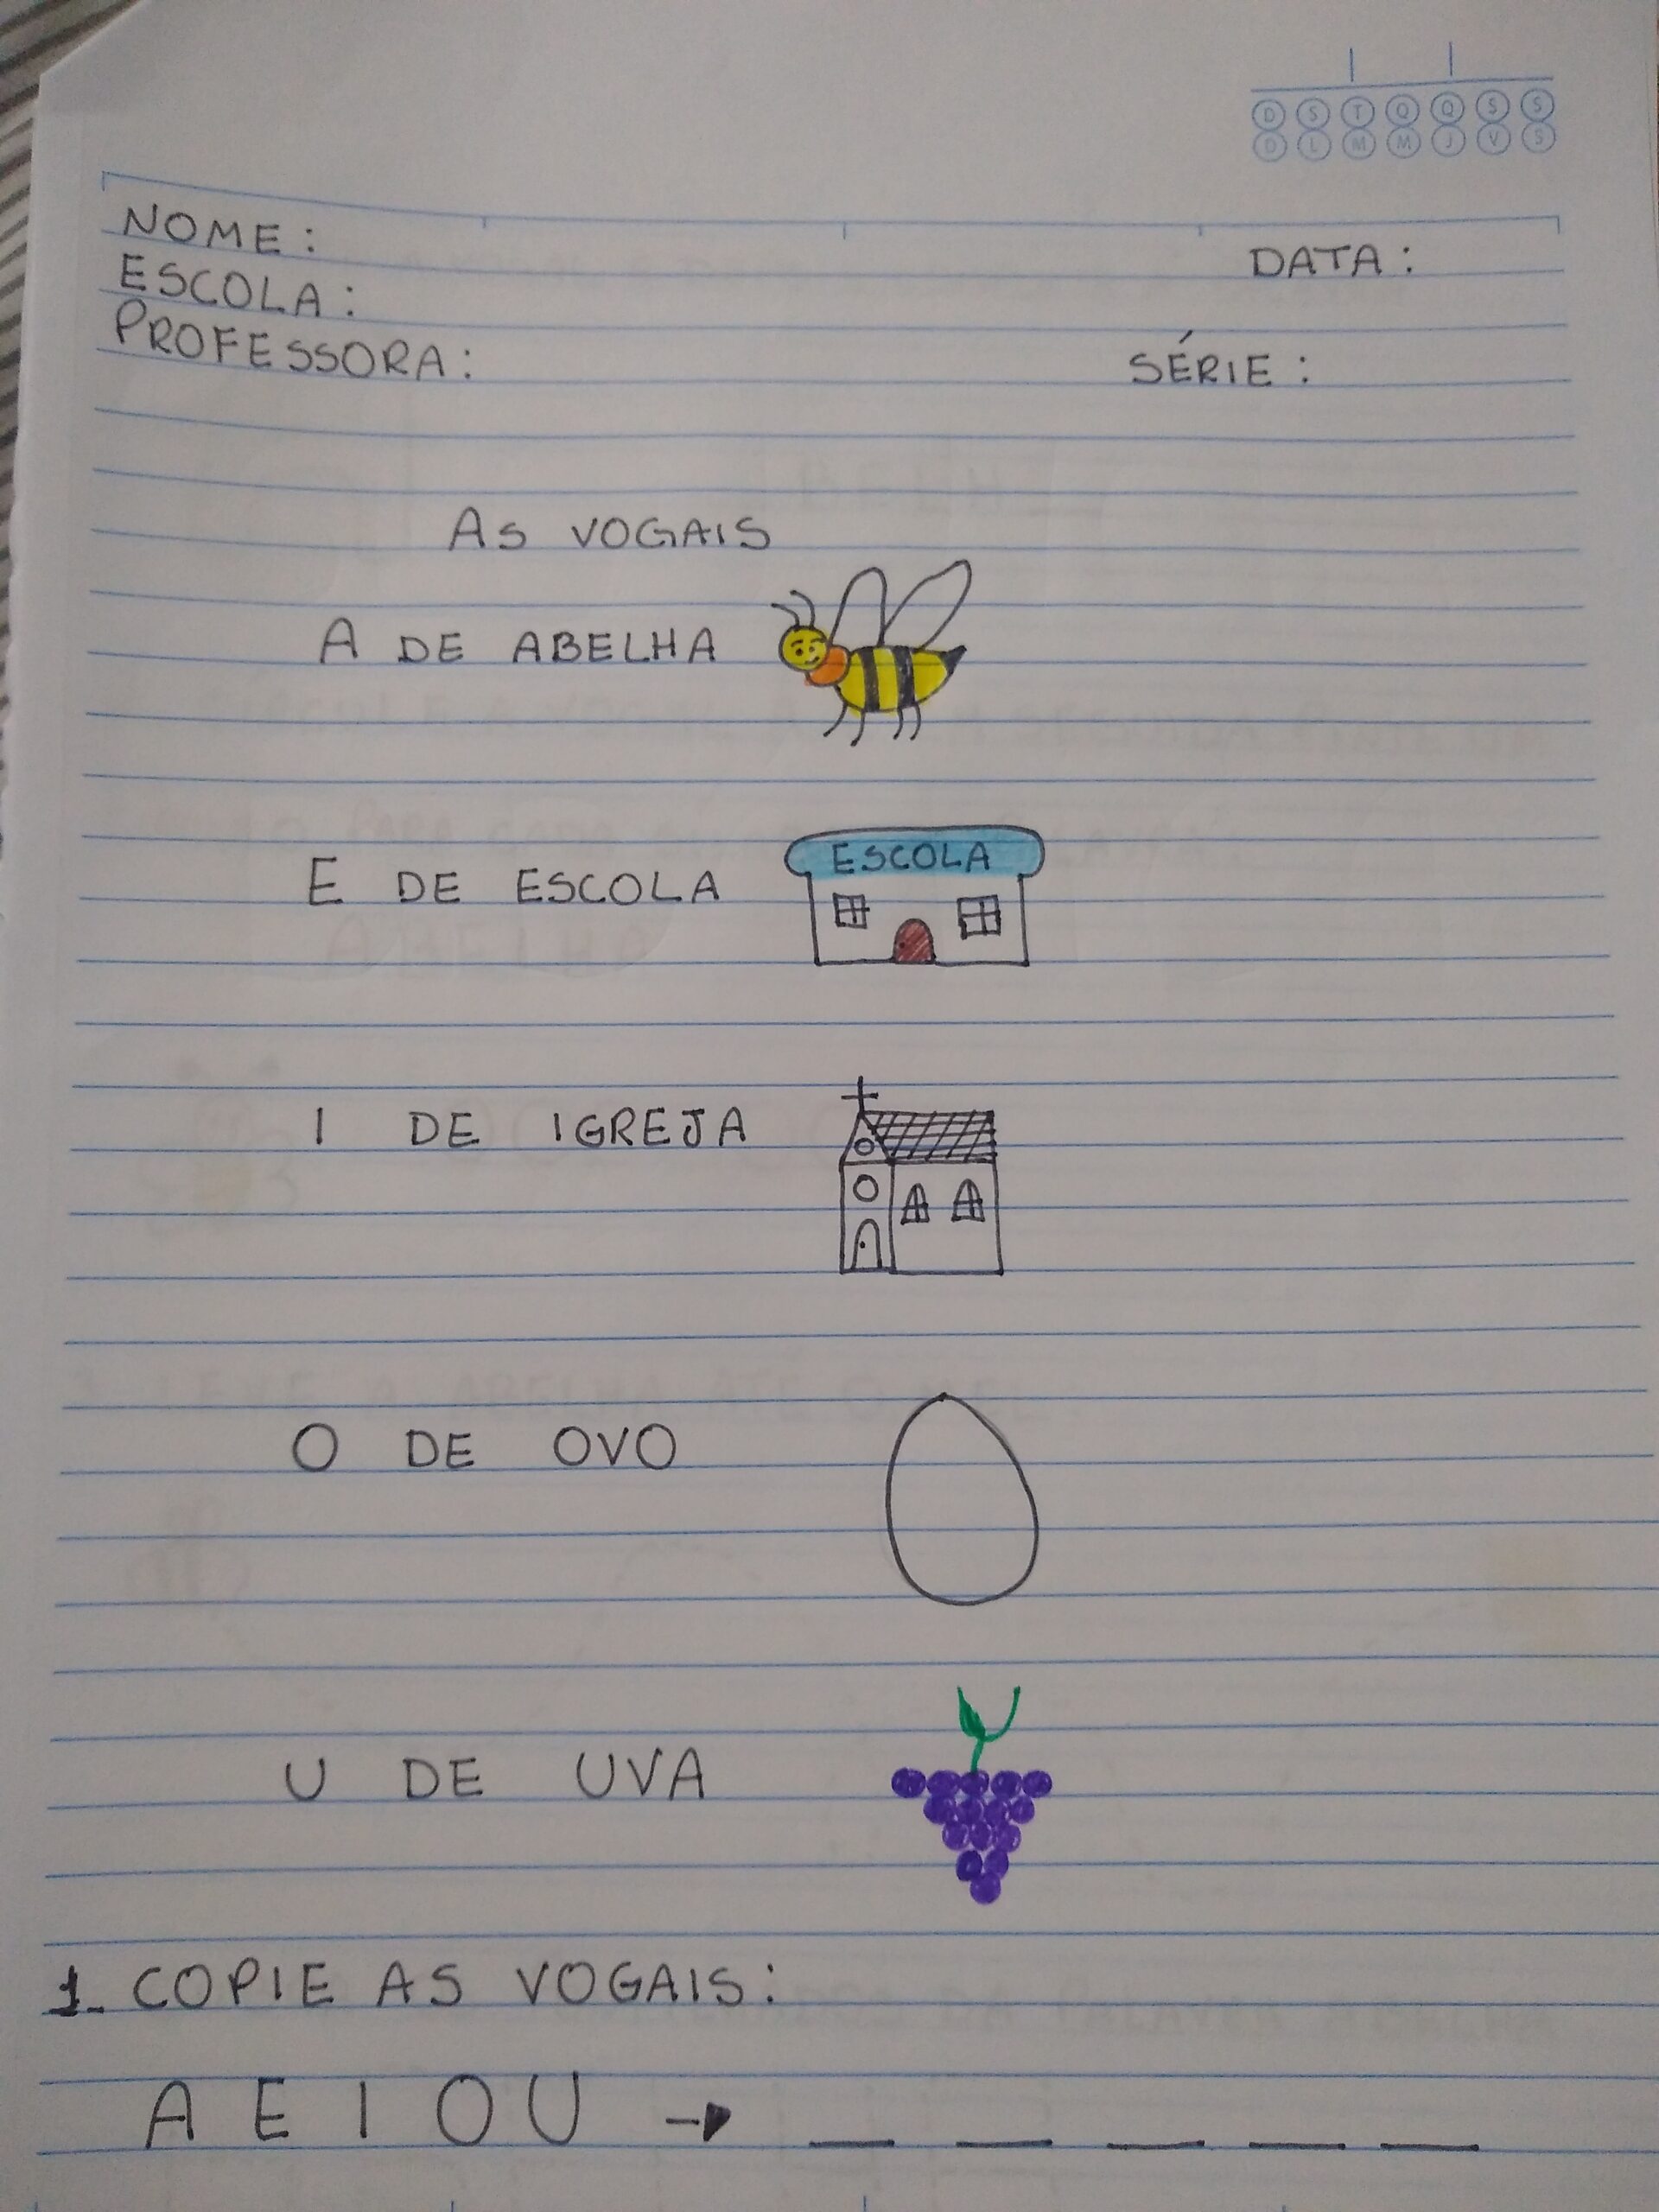 D S T Q Q S S
D L M M J V S
NOME:
DATA:
ESCOLA:
PROFESSORA:
SÉRIE:
AS VOGAIS
A DE ABELHA
E DE ESCOLA
ESCOLA
I DE IGREJA
O DE OVO
U DE UVA
1- COPIE AS VOGAIS:
A E I O U → _ _ _ _ _